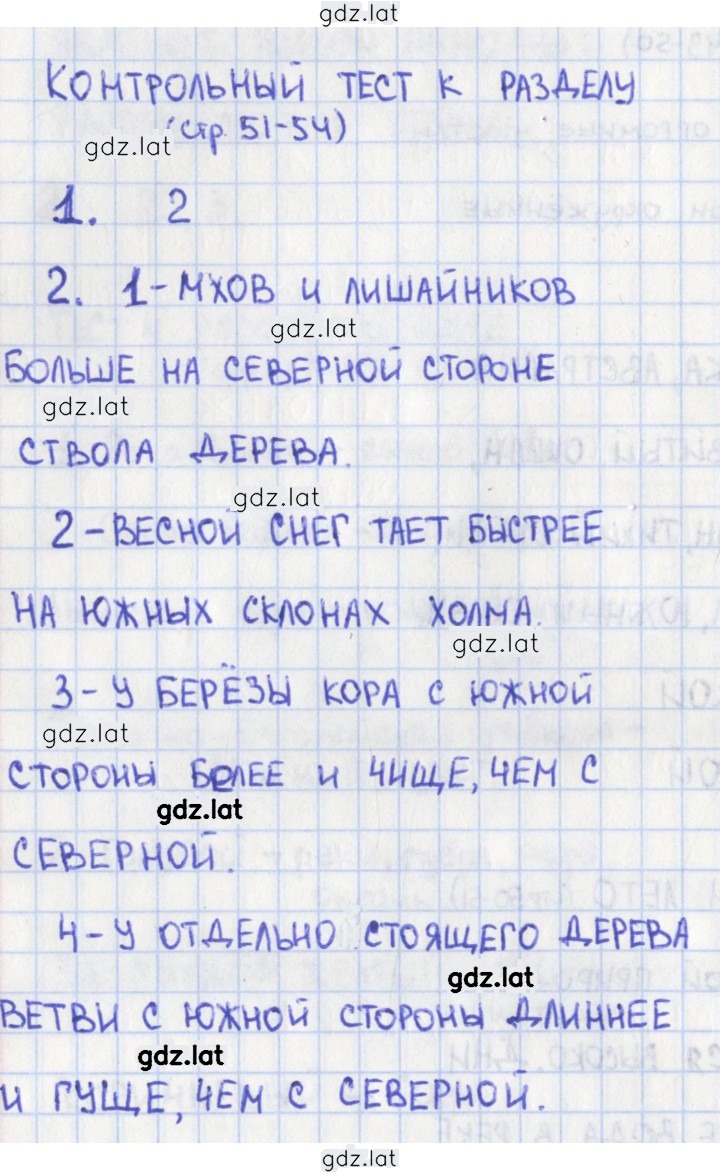 gdz.lat
КОНТРОЛЬНЫЙ ТЕСТ К РАЗДЕЛУ
(стр. 51-54)
gdz.lat
1. 2
2. 1-МХОВ И ЛИШАЙНИКОВ
gdz.lat
БОЛЬШЕ НА СЕВЕРНОЙ СТОРОНЕ
gdz.lat
СТВОЛА ДЕРЕВА.
gdz.lat
2-ВЕСНОЙ СНЕГ ТАЕТ БЫСТРЕЕ
НА ЮЖНЫХ СКЛОНАХ ХОЛМА.
gdz.lat
3-У БЕРЁЗЫ КОРА С ЮЖНОЙ
gdz.lat
СТОРОНЫ БЕЛЕЕ И ЧИЩЕ, ЧЕМ С
gdz.lat
СЕВЕРНОЙ.
4-У ОТДЕЛЬНО СТОЯЩЕГО ДЕРЕВА
gdz.lat
ВЕТВИ С ЮЖНОЙ СТОРОНЫ ДЛИННЕЕ
gdz.lat
И ГУЩЕ, ЧЕМ С СЕВЕРНОЙ.
gdz.lat